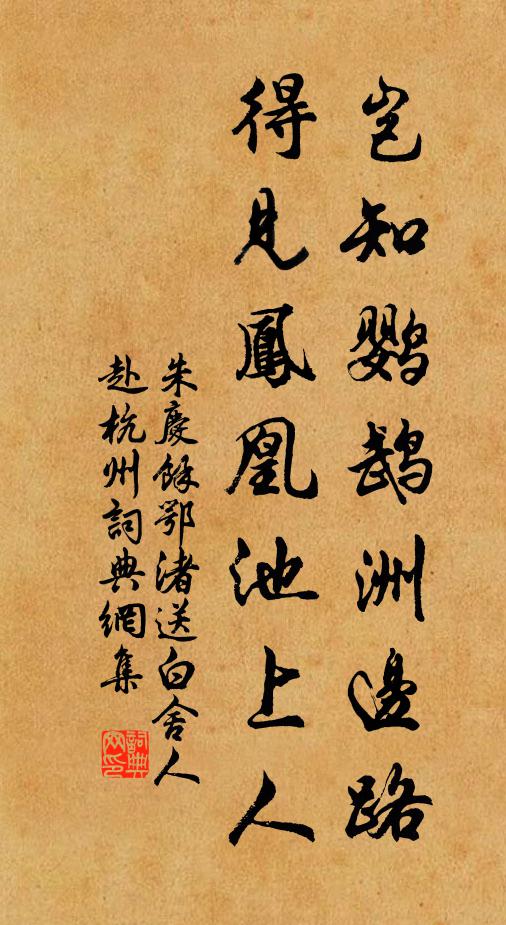 豈知鸚鵡洲邊路
得見鳳凰池上人
朱慶餘鄂渚送白舍人
赴杭州詞典網集
詞典網印